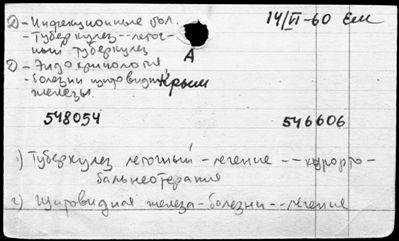 ①-Инфекционные бол.
14/VI-60 Ем
-Туберкулез--легоч-
ный туберкулез
А
②-Эндокринология
-болезни щитовидн.
Крым
железы.
548054
546606
1) Туберкулез легочный-лечение--курорто-
бальнеотерапия
2) Щитовидная железа-болезни--лечение